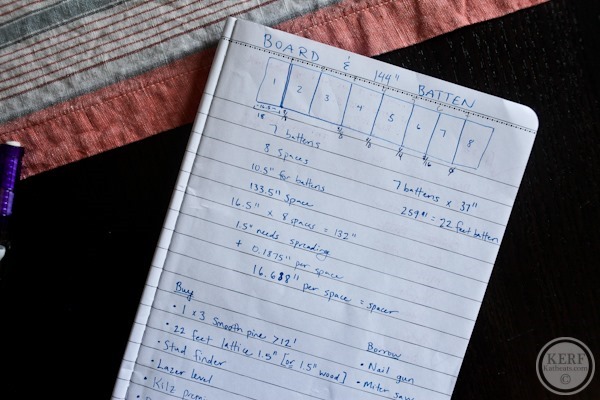 BOARD & BATTEN
144"
1 2 3 4 5 6 7 8
7 battens
8 spaces
10.5" for battens
133.5" space
16.5" x 8 spaces = 132"
1.5" needs spreading
+ 0.1875" per space
16.688" per space = spacer
7 battens x 37"
259" = 22 feet batten
Buy
• 1 x 3 smooth pine >12'
• 22 feet lattice 1.5" [or 1.5" wood]
• Stud finder
• Lazer level
• Kilz
Borrow
• Nail gun
• Miter saw
KERF
Katheats.com